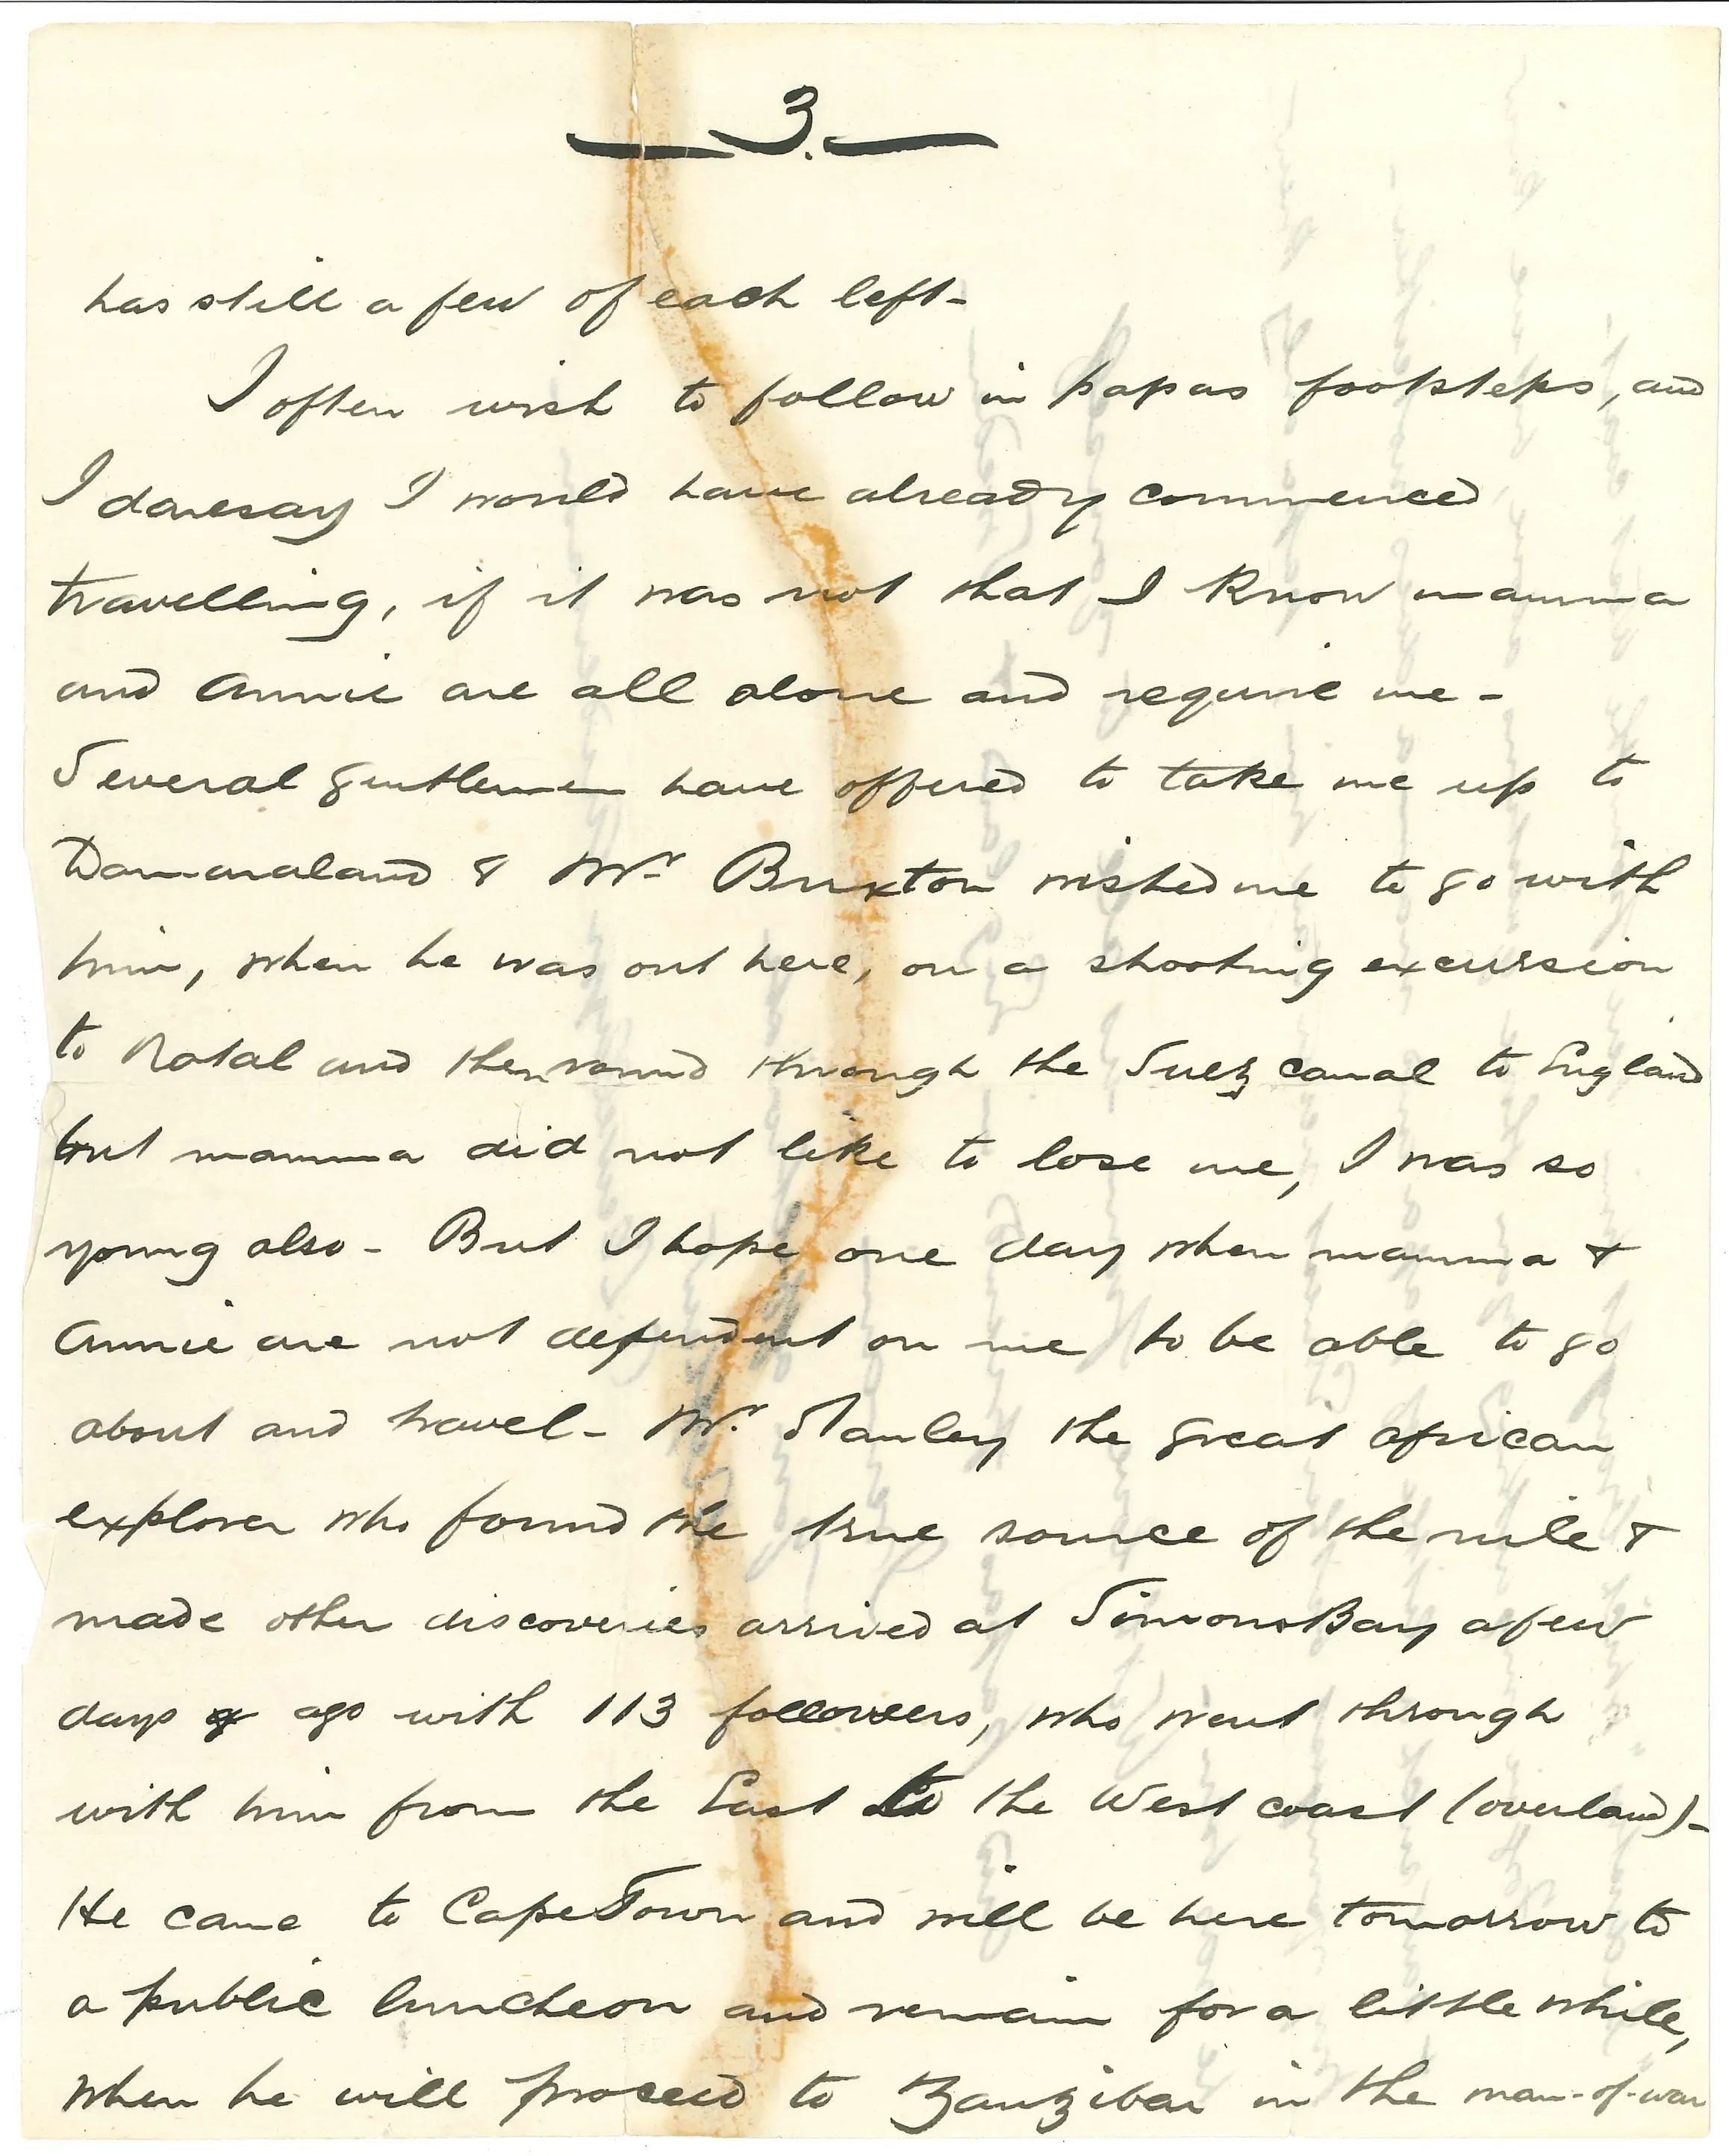 3.
has still a few of each left-
I often wish to follow in papas footsteps, and
I daresay I would have already commenced
travelling, if it was not that I know mamma
and Annie are all alone and require me -
Several gentlemen have offered to take me up to
Damaraland & Mr Buxton wished me to go with
him, when he was out here, on a shooting excursion
to Natal and then round through the Suez canal to England
but mamma did not like to lose me, I was so
young also - But I hope one day when mamma &
Annie are not dependent on me to be able to go
about and travel - Mr. Stanley the great african
explorer who found the true source of the nile &
made other discoveries arrived at Simons Bay a few
days ago with 113 followers, who went through
with him from the East to the West coast (overland) -
He came to Cape Town and will be here tomorrow to
a public luncheon and remain for a little while,
when he will proceed to Zanzibar in the man-of-war